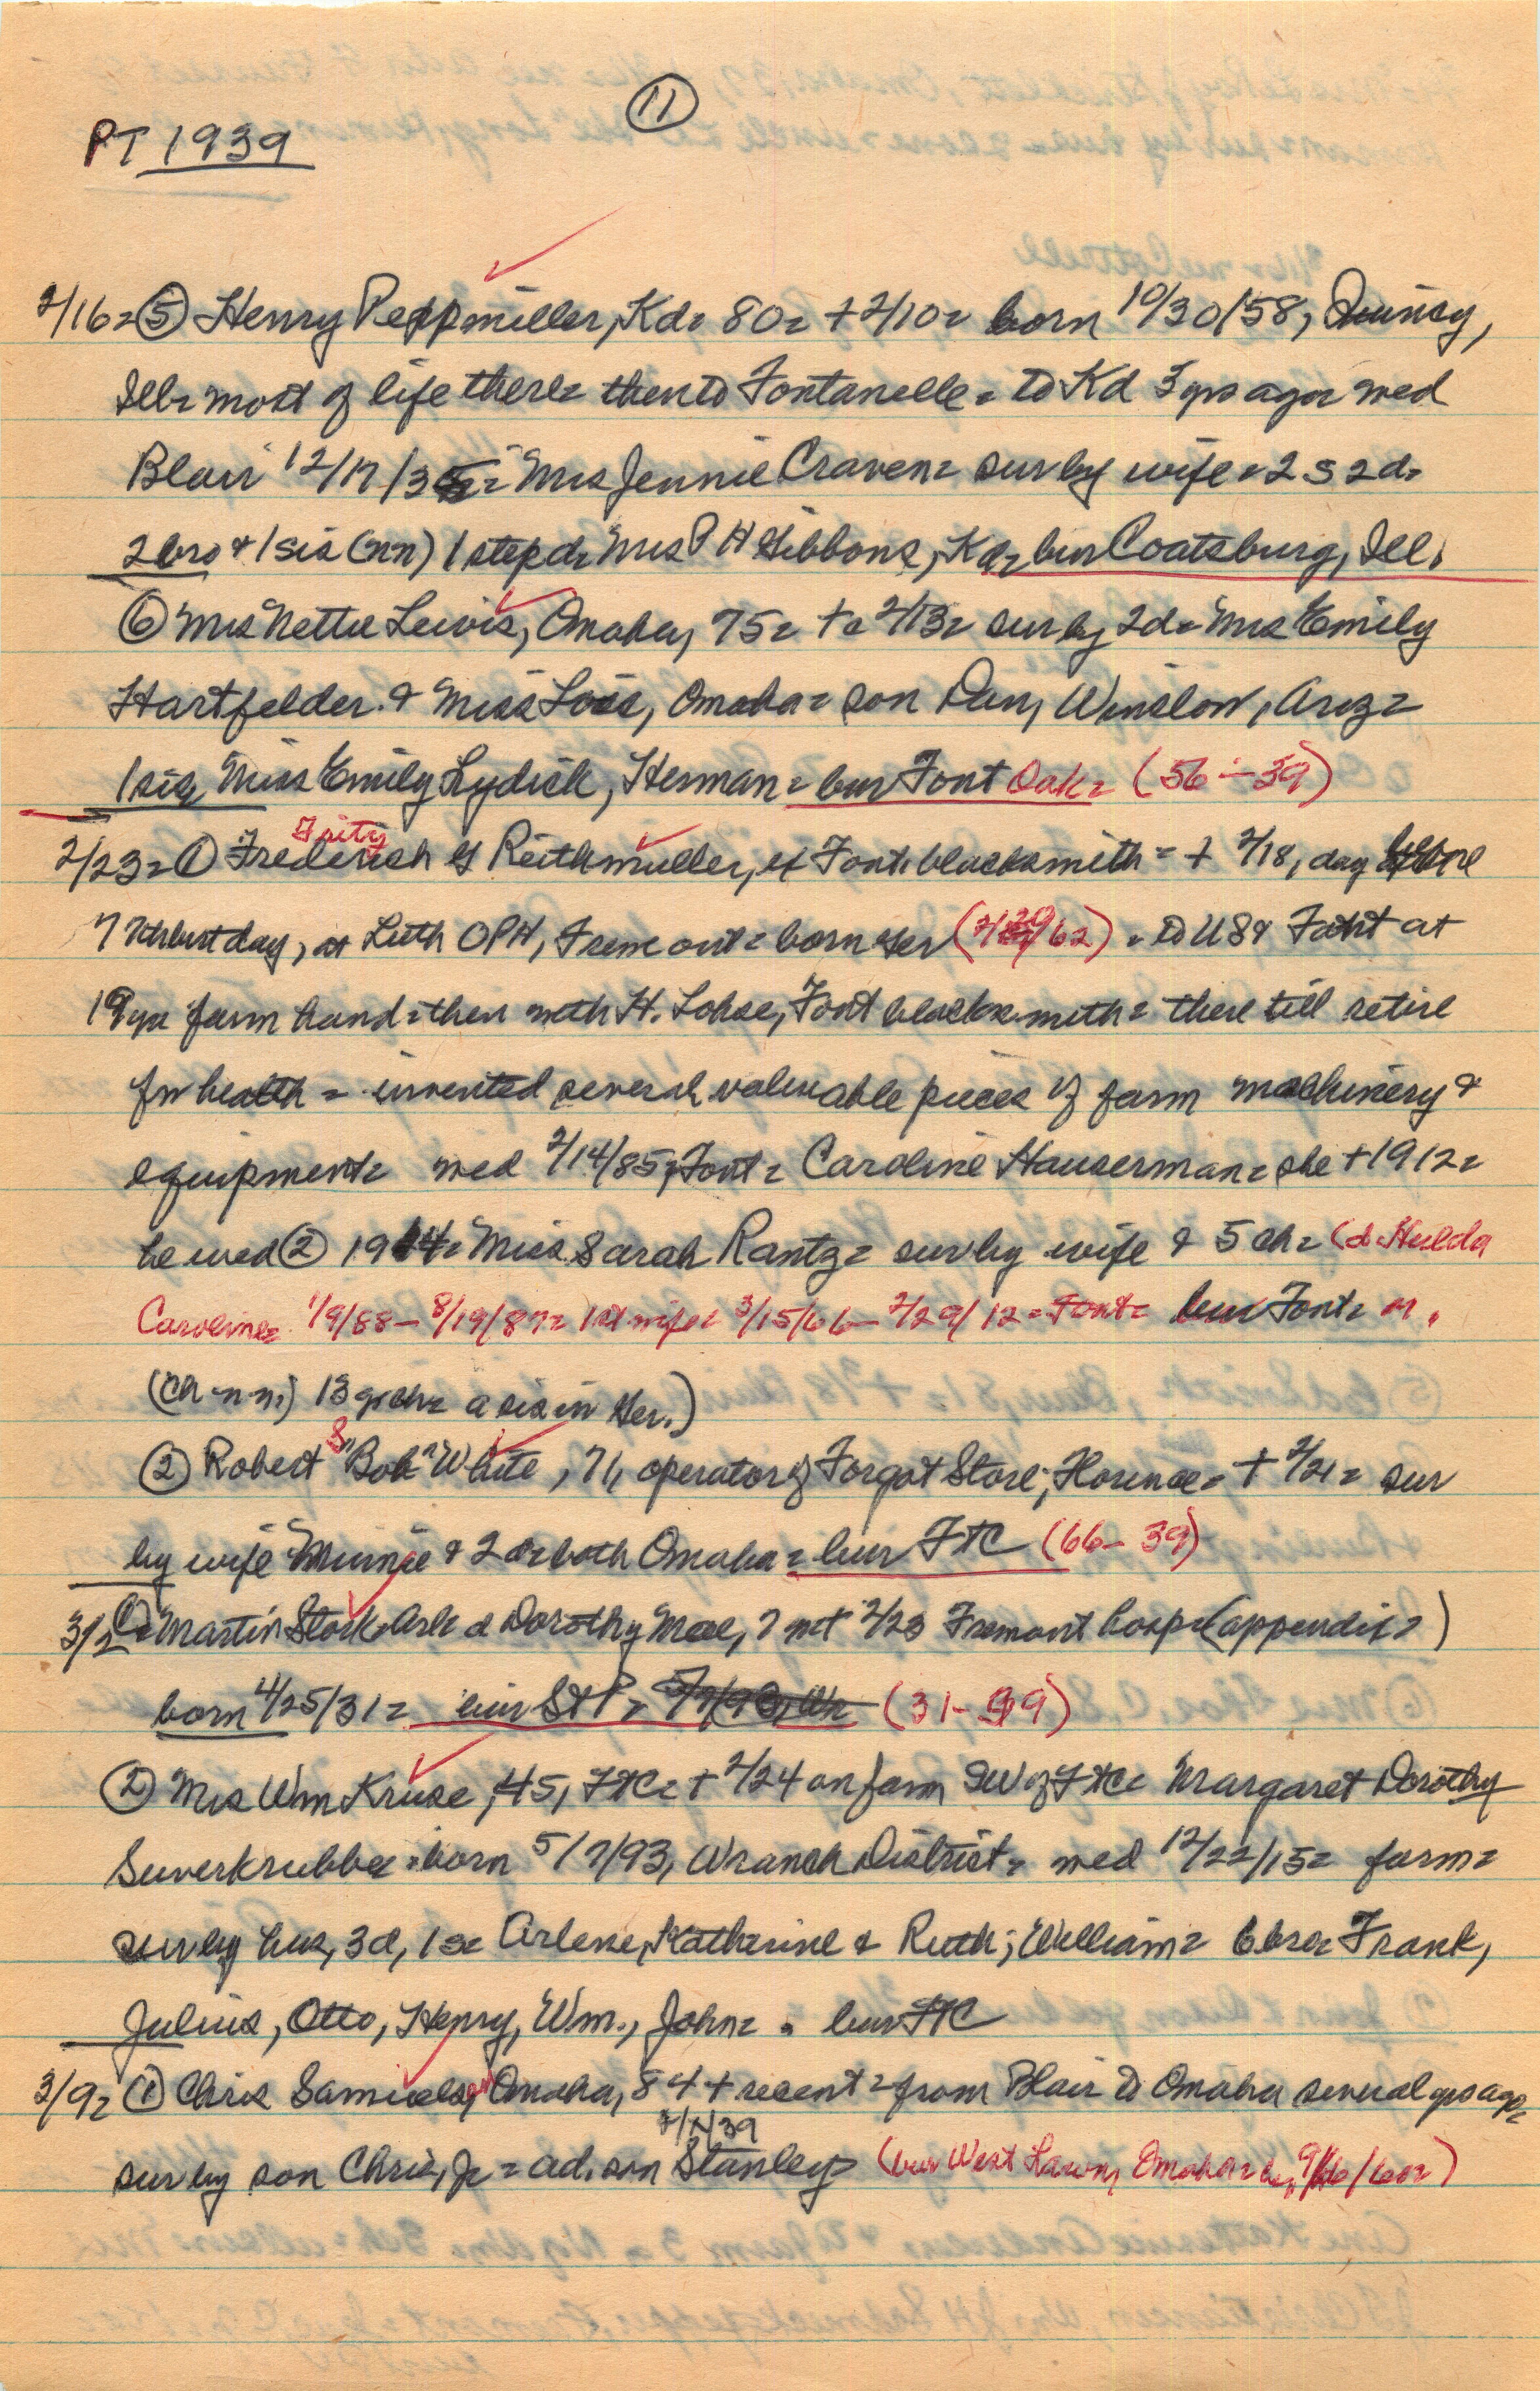 11
PT 1939
2/16= ⑤ Henry Peppmiller, Kd= 80= +2/10= born 10/30/58, Quincy,
Ill= most of life there= then to Fontanelle= to Kd 3 yrs ago= wed
Blair 12/17/35= Mrs Jennie Craven= sur by wife + 2 s 2 d=
2 bro + 1 sis (nn) 1 step d= Mrs P H Gibbons, Kd= bur Coatsburg, Ill.
⑥ Mrs Nettie Lewis, Omaha, 75= + 2/13= sur by 2d= Mrs Emily
Hartfelder & Miss Lois, Omaha= son Dan, Winslow, Ariz=
1 sis, Miss Emily Lydick, Herman= bur Font Oak= (56-39)
Fritz
2/23= ① Frederich Reithmuller, ex Font. blacksmith= + 2/18, day before
77th birthday, at Luth OPH, Fremont= born Ger (2/20/62) = to US & Font at
19 yrs farm hand= then with H. Lohse, Font blacksmith= there till retire
for health= invented several valuable pieces of farm machinery &
equipment= wed 2/14/85, Font= Caroline Hauserman= she +1912=
he wed ② 1914= Miss Sarah Rantz= sur by wife & 5 ch= (d. Hulda
Caroline= 1/9/88 - 8/19/87= 1st wife= 3/15/66 - 2/29/12= Font= bur Font=
(ch-nn) 13 g ch= a sis in Ger.)
② Robert S "Bob" White, 71, operator of Forgot Store, Florence= + 2/21= sur
by wife Minnie & 2 d= both Omaha= bur FTC (66-39)
3/2 ①= Martin Stork Arl= d Dorothy Mae, 7 2/23 Fremont hosp= (appendix=)
born 4/25/31= bur St P= 5/7/93, Wr (31-39)
② Mrs Wm Kruse, 45, FTC= + 2/24 on farm SW of FTC= Margaret Dorothy
Suverkrubbe= born 5/7/93, Wranch District= wed 12/22/15= farm=
sur by hus, 3d, 1s= Arlene, Katherine & Ruth; William= 6 bro= Frank,
Julius, Otto, Henry, Wm., John= bur FTC
3/9= ① Chris Samuelson, Omaha, 84 + recent= from Blair to Omaha several yrs ago=
39
sur by son Chris, Jr= ad. son Stanley (bur West Lawn, Omaha=